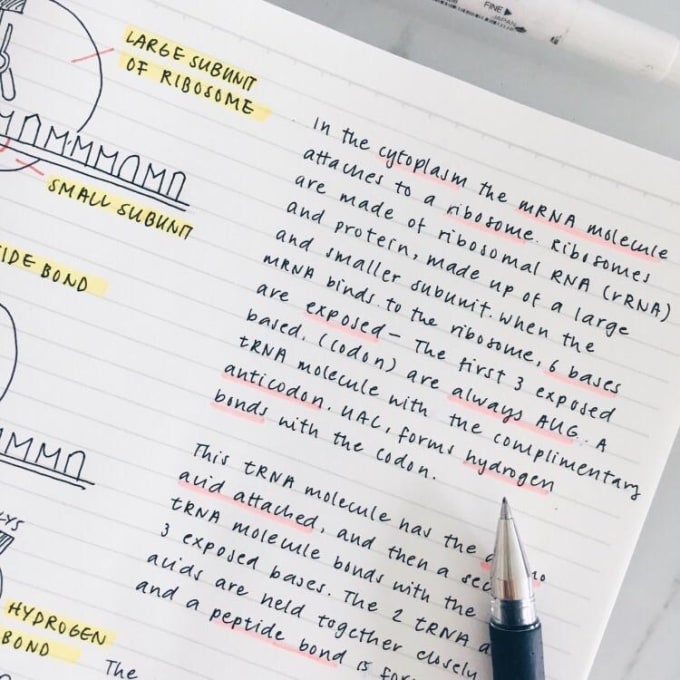 FINE ▶
JAPAN
LARGE SUBUNIT
OF RIBOSOME
SMALL SUBUNIT
IDE BOND
LYS
HYDROGEN
BOND
In the cytoplasm the mRNA molecule
attaches to a ribosome. Ribosomes
are made of ribosomal RNA (rRNA)
and protein, made up of a large
and smaller subunit. When the
mRNA binds to the ribosome, 6 bases
are exposed – The first 3 exposed
based, (codon) are always AUG. A
tRNA molecule with the complimentary
anticodon. UAC, forms hydrogen
bonds with the codon.
This tRNA molecule has the
acid attached, and then a sec
tRNA molecule bonds with the
3 exposed bases. The 2 tRNA a
acids are held together closely
and a peptide bond is for
The